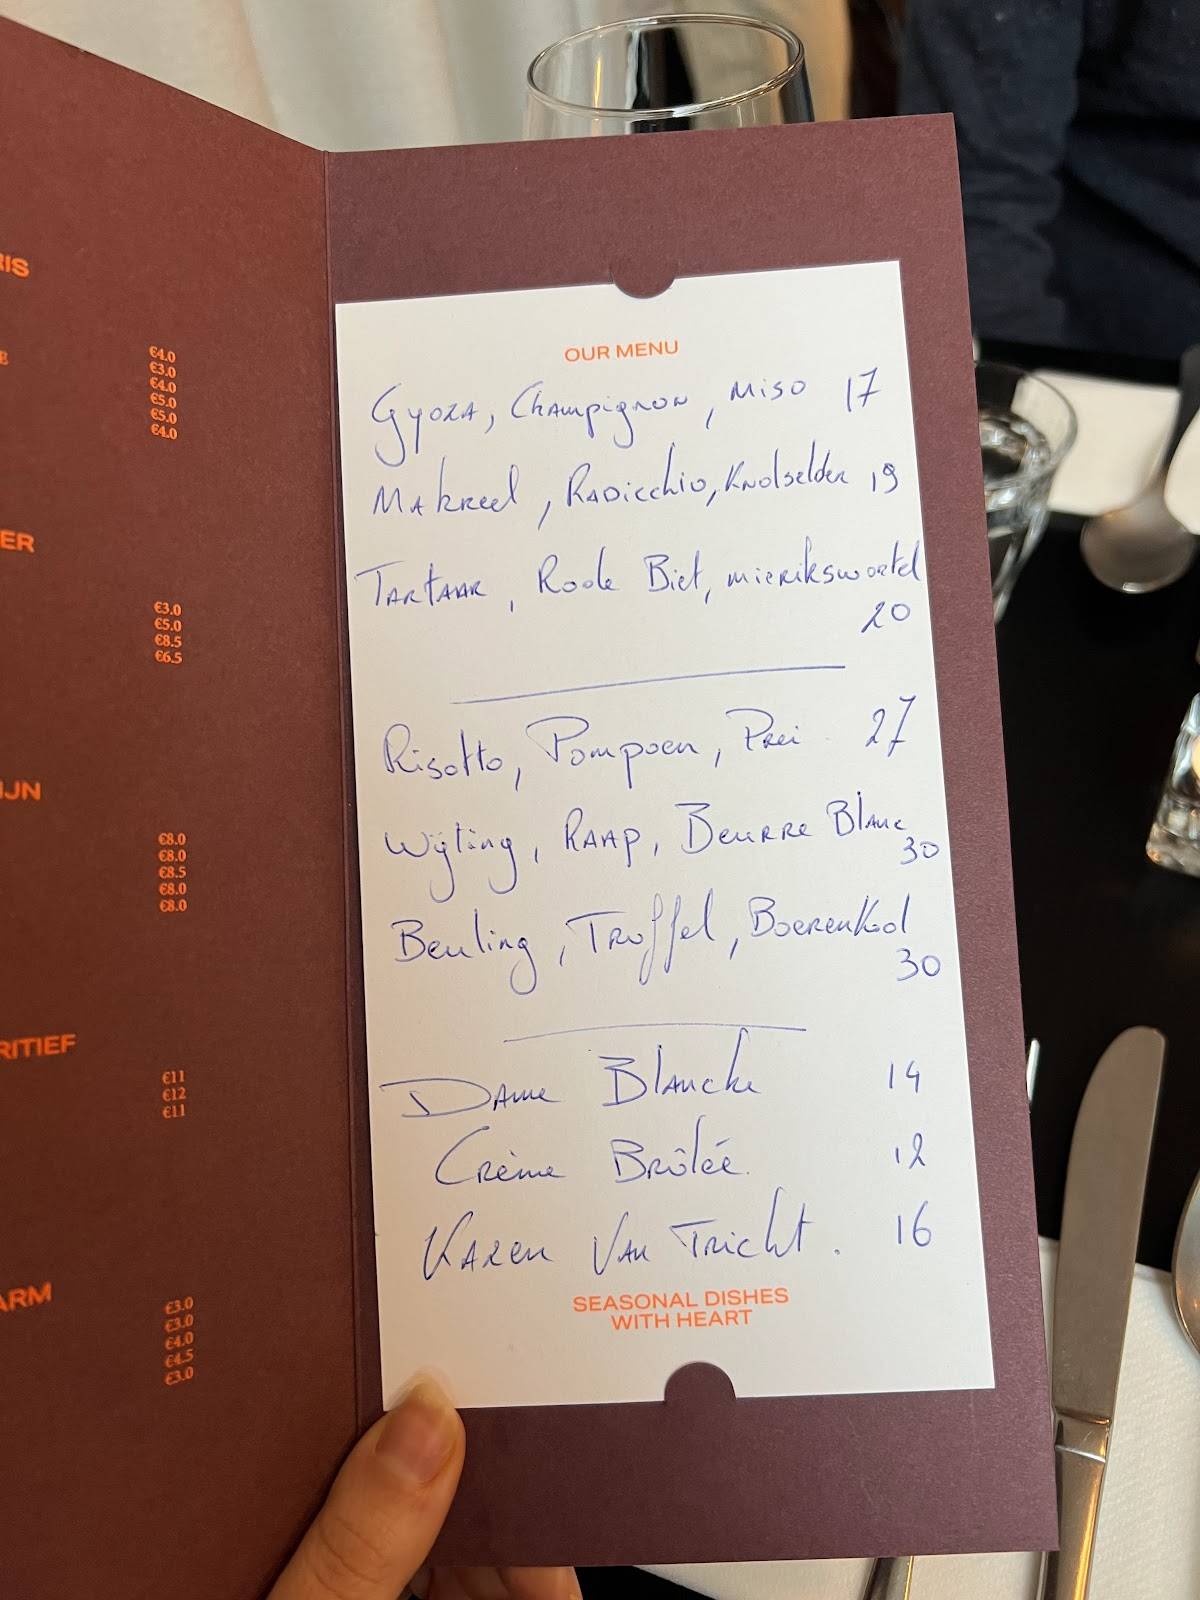 RIS
E
€4.0
€3.0
€4.0
€5.0
€5.0
€4.0
ER
€3.0
€5.0
€8.5
€6.5
IJN
€8.0
€8.0
€8.5
€8.0
€8.0
RITIEF
€11
€12
€11
ARM
€3.0
€3.0
€4.0
€4.5
€3.0
OUR MENU
Gyoza, Champignon, Miso 17
Makreel, Radicchio, Knolselder 19
Tartaar, Rode Biet, mierikswortel
20
Risotto, Pompoen, Prei 27
Wijting, Raap, Beurre Blanc
30
Beuling, Truffel, Boerenkool
30
Dame Blanche 14
Crème Brûlée 12
Karen Van Tricht. 16
SEASONAL DISHES
WITH HEART